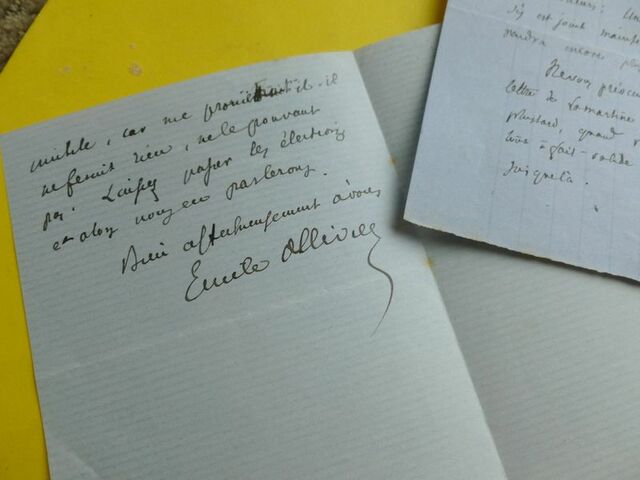 inutile, car me promettrait-il
ne ferait rien, ne le pouvant
pas. Laissez passer les élections
et alors nous en parlerons.
Bien affectueusement à vous
Emile Ollivier
Il y est joint
rendra encore
lettre de Lamartine
quand
tout à fait
jusque là.